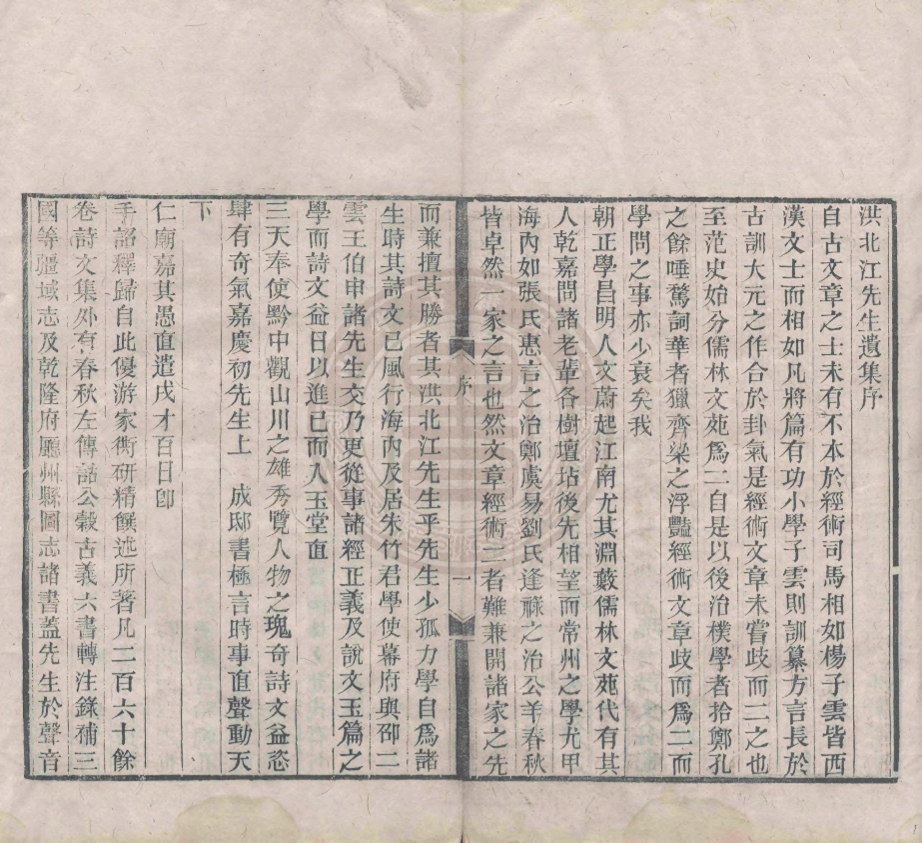 洪北江先生遺集序
自古文章之士未有不本於經術司馬相如楊子雲皆西
漢文士而相如凡將篇有功小學子雲則訓纂方言長於
古訓大元之作合於卦氣是經術文章未嘗歧而二之也
至范史始分儒林文苑爲二自是以後治樸學者拾鄭孔
之餘唾騖詞華者獵齊梁之浮豔經術文章歧而爲二而
學問之事亦少衰矣我
朝正學昌明人文蔚起江南尤其淵藪儒林文苑代有其
人乾嘉間諸老輩各樹壇坫後先相望而常州之學尤甲
海內如張氏惠言之治鄭虞易劉氏逢祿之治公羊春秋
皆卓然一家之言也然文章經術二者難兼開諸家之先
序
一
而兼擅其勝者其洪北江先生乎先生少孤力學自爲諸
生時其詩文已風行海內及居朱竹君學使幕府與邵二
雲王伯申諸先生交乃更從事諸經正義及說文玉篇之
學而詩文益日以進已而入玉堂直
三天奉使黔中觀山川之雄秀覽人物之瑰奇詩文益恣
肆有奇氣嘉慶初先生上 成邸書極言時事直聲動天
下
仁廟嘉其愚直遣戍才百日卽
手詔釋歸自此優游家衖研精饌述所著凡二百六十餘
卷詩文集外有春秋左傳詁公穀古義六書轉注錄補三
國等疆域志及乾隆府廳州縣圖志諸書蓋先生於聲音